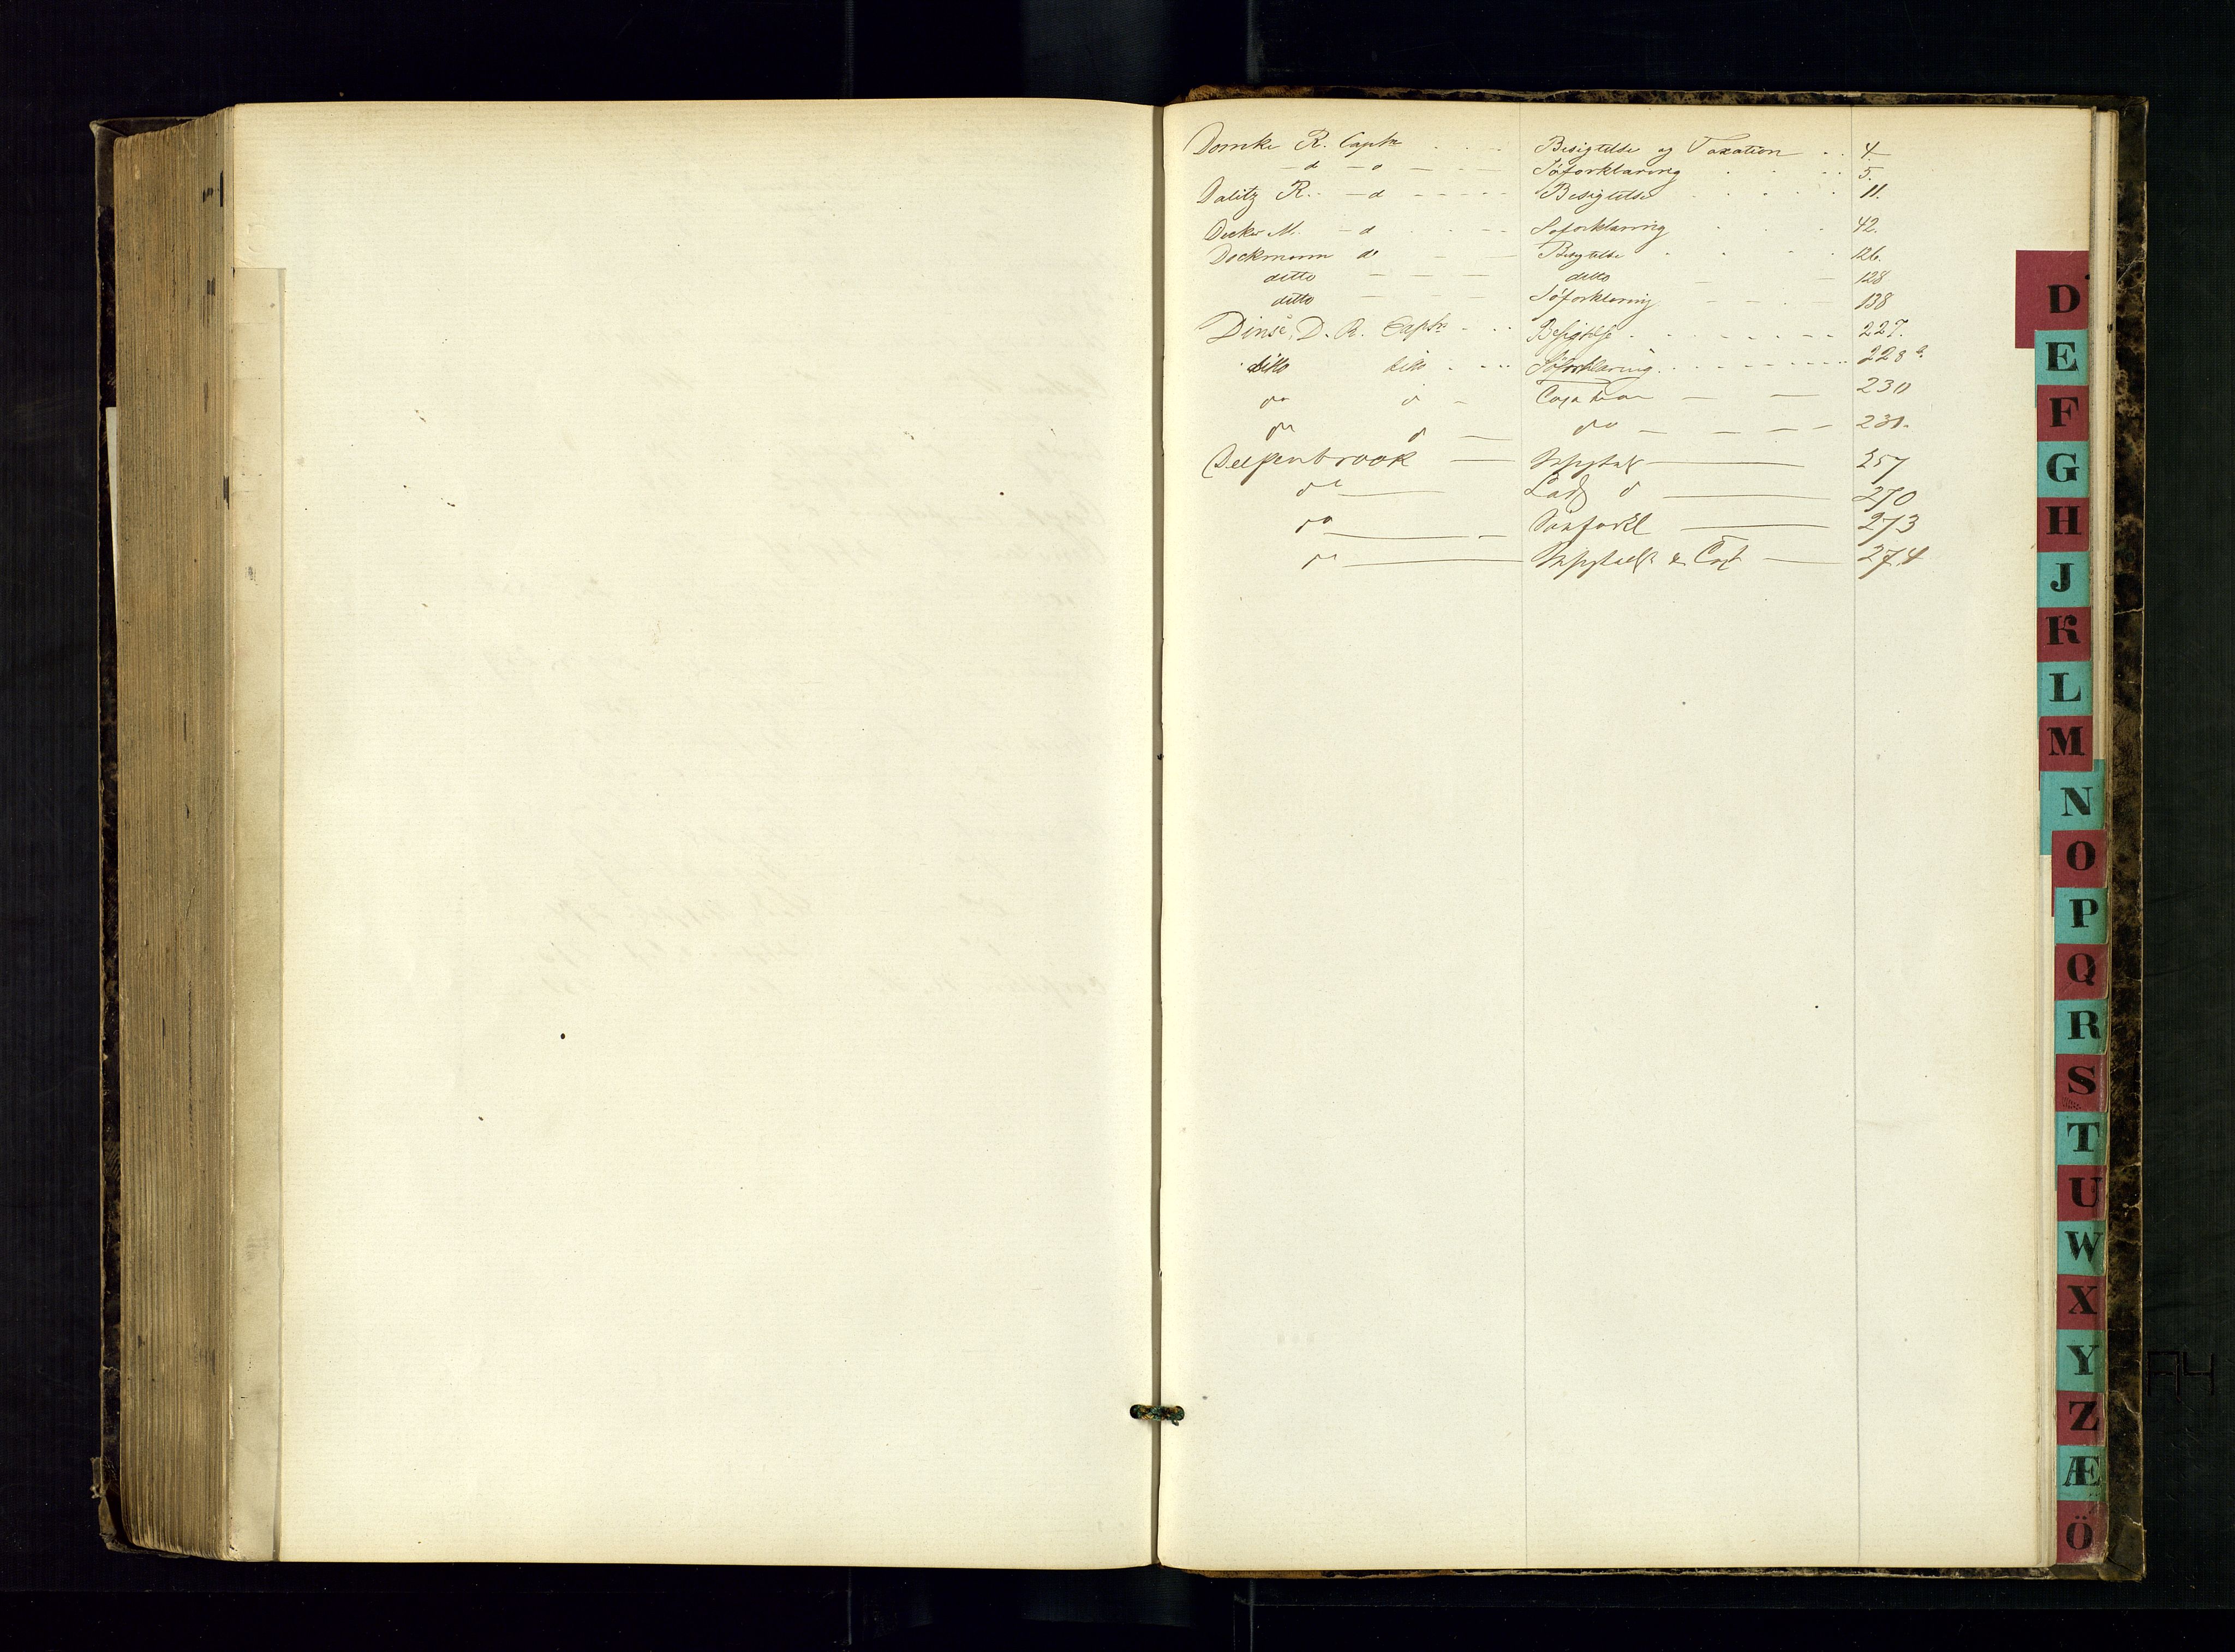 Domke R. Captn . . . Besigtelse og Taxation . . 4.
- d - o - - - Söforklaring . . . 5.
Dalitz R. - d - - - - - Besigtelse . . . . . 11.
Decker M. - d . . - - Soforklaring . . . 42.
Dockmann do - - Besigtelse . . . . 126.
ditto - - - ditto - - 128
ditto - - - Söforklaring - - - - 138
Dinse, D. R. Captn . . . Besigtelse . - - - - - - 227.
ditto ditto . - . . Söforklaring . . - - - - - - - 228
do d - Taxation - - 230
do d - do - - - - 231.
Diepenbrook — 257
do — Last d — 270
do — - Söeforkl — 273
do — & Tax — 274
D
E
F
G
H
J
K
L
M
N
O
P
Q
R
S
T
U
W
X
Y
Z
Æ
Ö